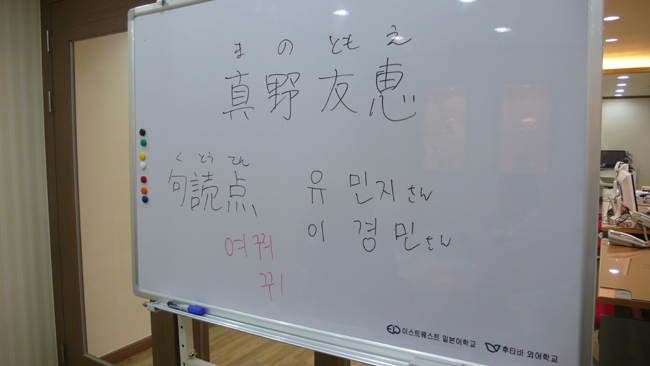 まの ともえ
真野友恵
くとうてん
句読点
유 민지さん
이 경민さん
여꿔
꾸ㅣ
이스트웨스트 일본어학교
후타바 외어학교